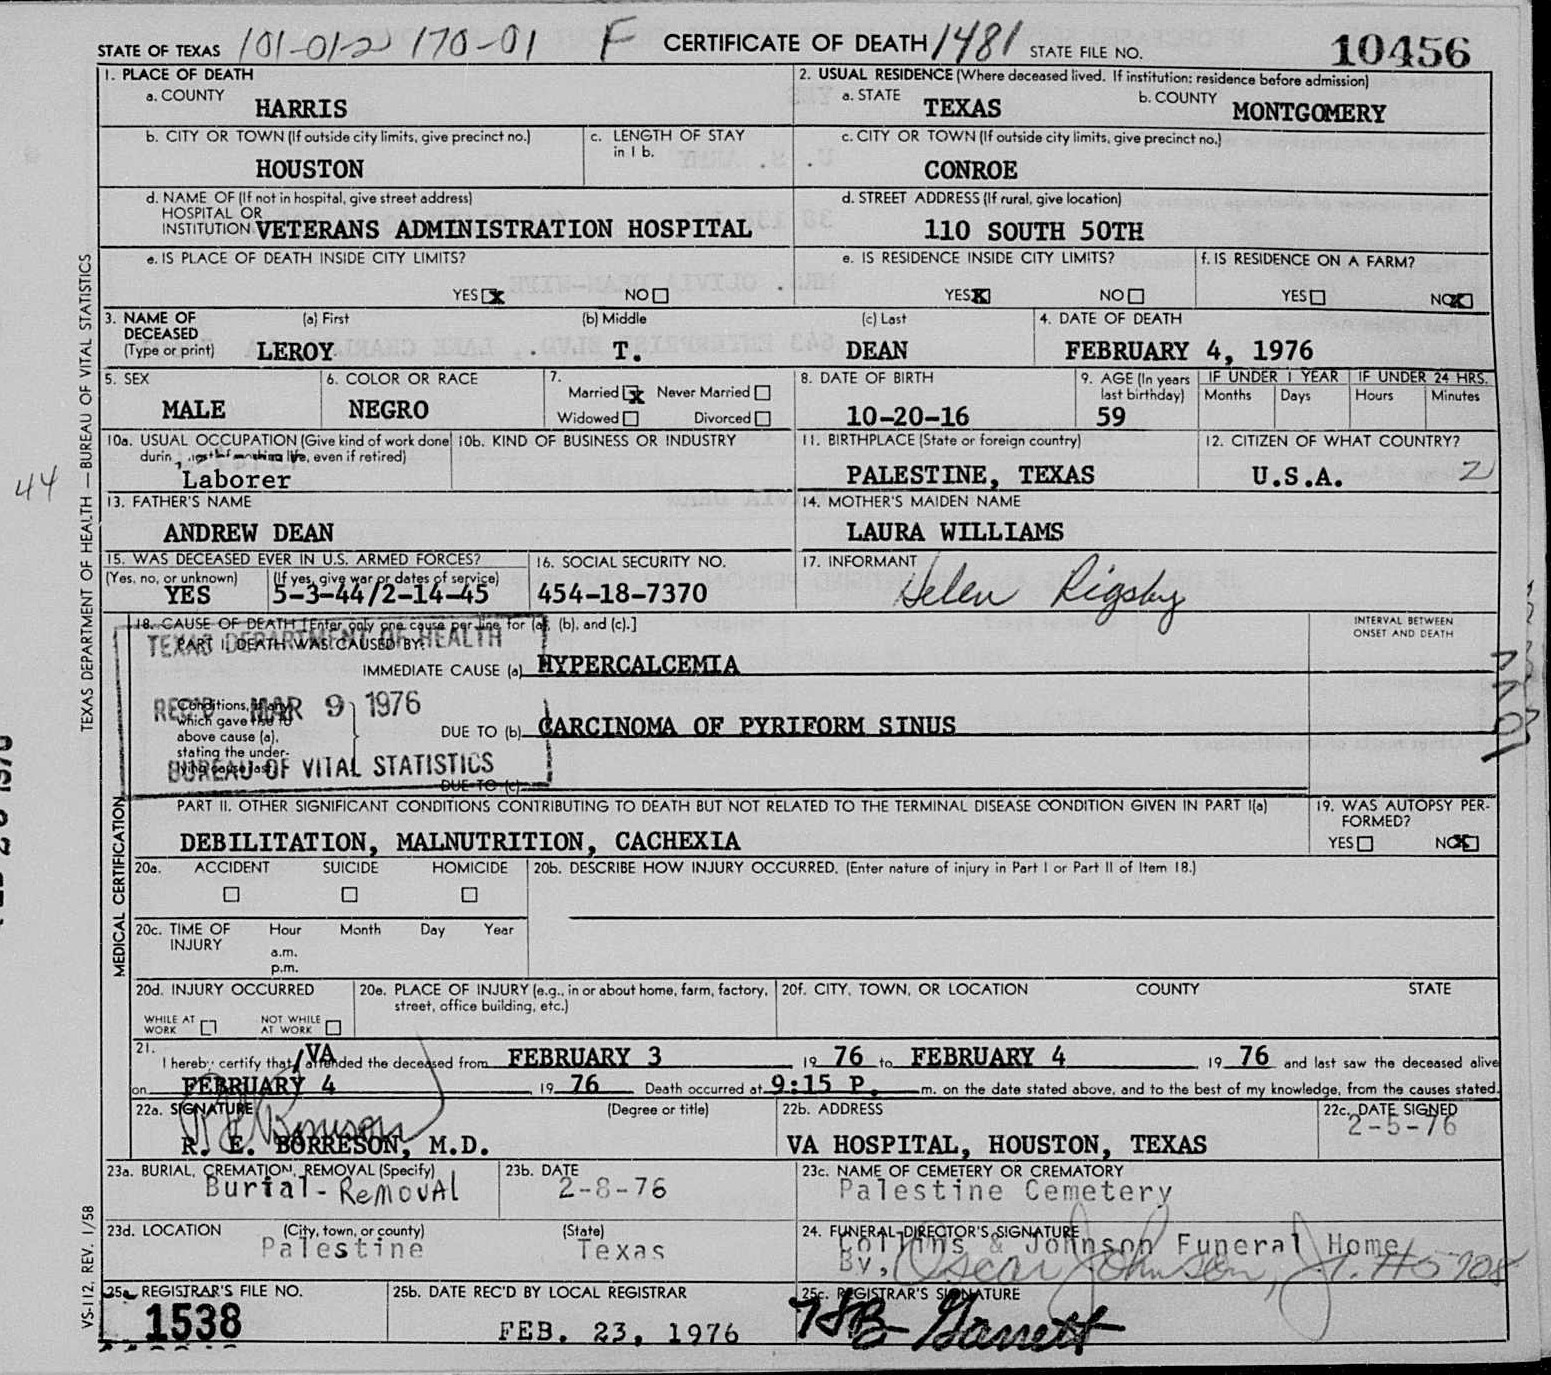 STATE OF TEXAS 101-01-2 170-01 F CERTIFICATE OF DEATH 1481 STATE FILE NO. 10456
1. PLACE OF DEATH
a. COUNTY HARRIS
2. USUAL RESIDENCE (Where deceased lived. If institution: residence before admission)
a. STATE TEXAS b. COUNTY MONTGOMERY
b. CITY OR TOWN (If outside city limits, give precinct no.)
HOUSTON
c. LENGTH OF STAY in 1 b.
c. CITY OR TOWN (If outside city limits, give precinct no.)
CONROE
d. NAME OF (If not in hospital, give street address)
HOSPITAL OR
INSTITUTION VETERANS ADMINISTRATION HOSPITAL
d. STREET ADDRESS (If rural, give location)
110 SOUTH 50TH
e. IS PLACE OF DEATH INSIDE CITY LIMITS?
YES X NO
e. IS RESIDENCE INSIDE CITY LIMITS?
YES X NO
f. IS RESIDENCE ON A FARM?
YES NO X
3. NAME OF DECEASED (Type or print)
(a) First (b) Middle (c) Last
LEROY T. DEAN
4. DATE OF DEATH
FEBRUARY 4, 1976
5. SEX
MALE
6. COLOR OR RACE
NEGRO
7.
Married X Never Married
Widowed Divorced
8. DATE OF BIRTH
10-20-16
9. AGE (In years last birthday)
59
IF UNDER 1 YEAR IF UNDER 24 HRS.
Months Days Hours Minutes
10a. USUAL OCCUPATION (Give kind of work done
life, even if retired)
Laborer
10b. KIND OF BUSINESS OR INDUSTRY
11. BIRTHPLACE (State or foreign country)
PALESTINE, TEXAS
12. CITIZEN OF WHAT COUNTRY?
U.S.A.
44
13. FATHER'S NAME
ANDREW DEAN
14. MOTHER'S MAIDEN NAME
LAURA WILLIAMS
15. WAS DECEASED EVER IN U.S. ARMED FORCES?
(Yes, no, or unknown) (If yes, give war or dates of service)
YES 5-3-44/2-14-45
16. SOCIAL SECURITY NO.
454-18-7370
17. INFORMANT
Helen Rigsby
18. CAUSE OF DEATH [Enter only one cause per line for (a), (b), and (c).]
PART I. DEATH WAS CAUSED BY:
INTERVAL BETWEEN ONSET AND DEATH
TEXAS DEPARTMENT OF HEALTH
REC'D MAR 9 1976
BUREAU OF VITAL STATISTICS
IMMEDIATE CAUSE (a) HYPERCALCEMIA
Conditions, if any,
which gave rise to
above cause (a),
stating the under-
lying cause last.
DUE TO (b) CARCINOMA OF PYRIFORM SINUS
DUE TO (c)
PART II. OTHER SIGNIFICANT CONDITIONS CONTRIBUTING TO DEATH BUT NOT RELATED TO THE TERMINAL DISEASE CONDITION GIVEN IN PART I(a)
DEBILITATION, MALNUTRITION, CACHEXIA
19. WAS AUTOPSY PER-
FORMED?
YES NO X
20a. ACCIDENT SUICIDE HOMICIDE
20b. DESCRIBE HOW INJURY OCCURRED. (Enter nature of injury in Part I or Part II of Item 18.)
20c. TIME OF INJURY
Hour Month Day Year
a.m.
p.m.
20d. INJURY OCCURRED
WHILE AT WORK NOT WHILE AT WORK
20e. PLACE OF INJURY (e.g., in or about home, farm, factory,
street, office building, etc.)
20f. CITY, TOWN, OR LOCATION COUNTY STATE
21. I hereby certify that VA attended the deceased from FEBRUARY 3 19 76 to FEBRUARY 4, 19 76 and last saw the deceased alive
on FEBRUARY 4 19 76 Death occurred at 9:15 P. m. on the date stated above, and to the best of my knowledge, from the causes stated.
22a. SIGNATURE (Degree or title)
R. E. BORRESON, M.D.
22b. ADDRESS
VA HOSPITAL, HOUSTON, TEXAS
22c. DATE SIGNED
2-5-76
23a. BURIAL, CREMATION, REMOVAL (Specify)
Burial - Removal
23b. DATE
2-8-76
23c. NAME OF CEMETERY OR CREMATORY
Palestine Cemetery
23d. LOCATION (City, town, or county) (State)
Palestine Texas
24. FUNERAL DIRECTOR'S SIGNATURE
Collins & Johnson Funeral Home
By, Oscar Johnson, Jr.
25a. REGISTRAR'S FILE NO.
1538
25b. DATE REC'D BY LOCAL REGISTRAR
FEB. 23, 1976
25c. REGISTRAR'S SIGNATURE
Garrett
TEXAS DEPARTMENT OF HEALTH — BUREAU OF VITAL STATISTICS
MEDICAL CERTIFICATION
VS-112, REV. 1/58